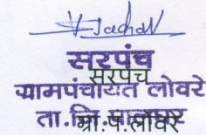 सरपंच
सरपंच
ग्रामपंचायत लोवरे
ता.जि.
ग्रा.पं.लोवरे